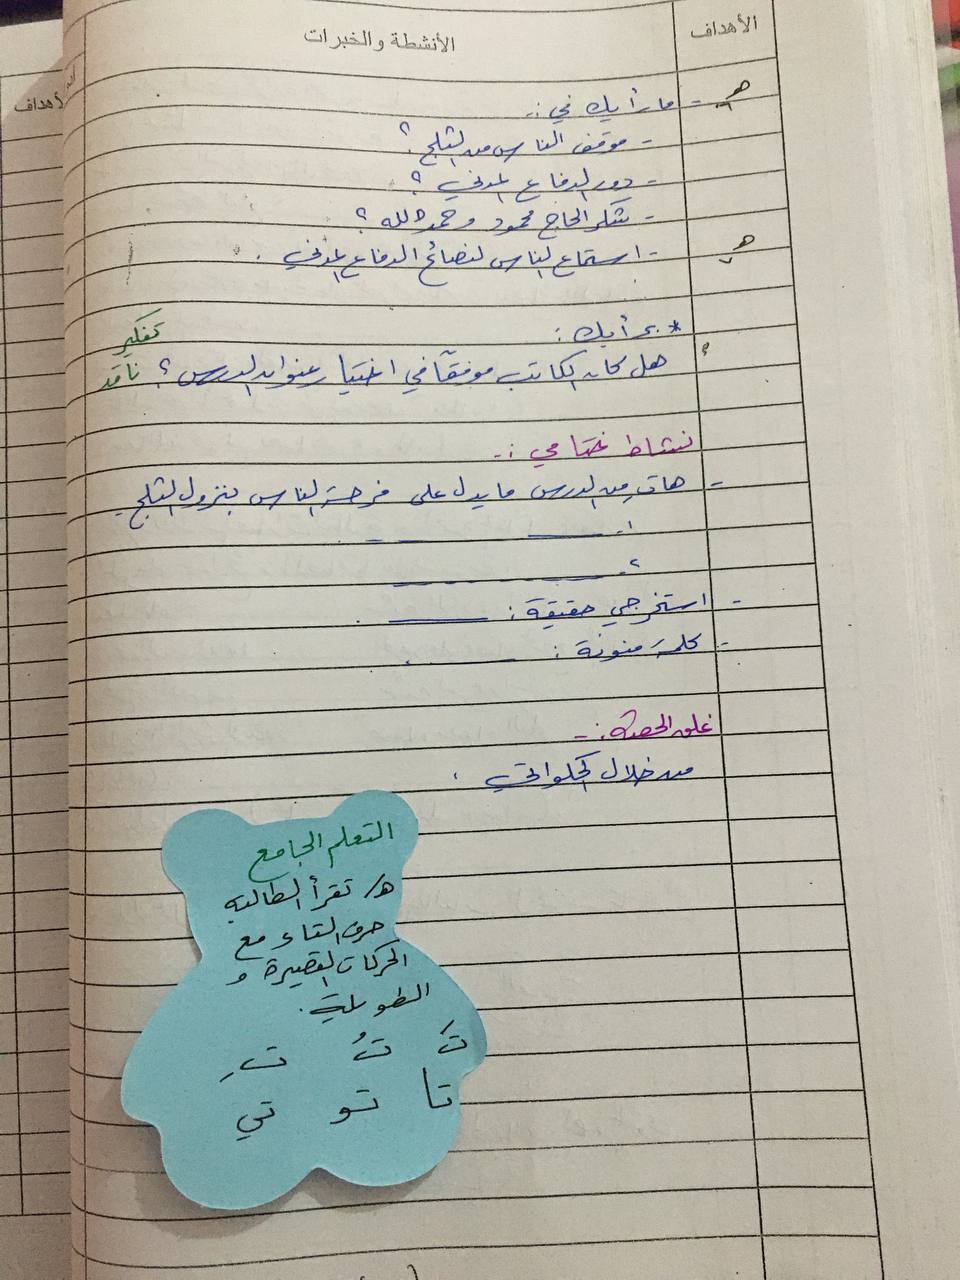 الأهداف
الأنشطة والخبرات
هـ - ما رأيك في :-
- موقف الناس من الثلج ؟
- دور الدفاع المدني ؟
- شكر الحاج محمود وحمد الله ؟
هـ - استماع الناس لنصائح الدفاع المدني .
* برأيك :
هل كان الكاتب موفقًا في اختيار عنوان الدرس ؟
تفكير
ناقد
نشاط ختامي :-
- هات من الدرس ما يدل على فرحة الناس بنزول الثلج
١-
٢-
- استخرجي حقيقة :
- كلمة منونة :
غلق الحصة :-
من خلال الحكواتي .
التعلم الجامع
هـ/ تقرأ الطالبة
حرف التاء مع
الحركات القصيرة و
الطويلة .
تَ تُ تِ
تا تو تي
الأهداف